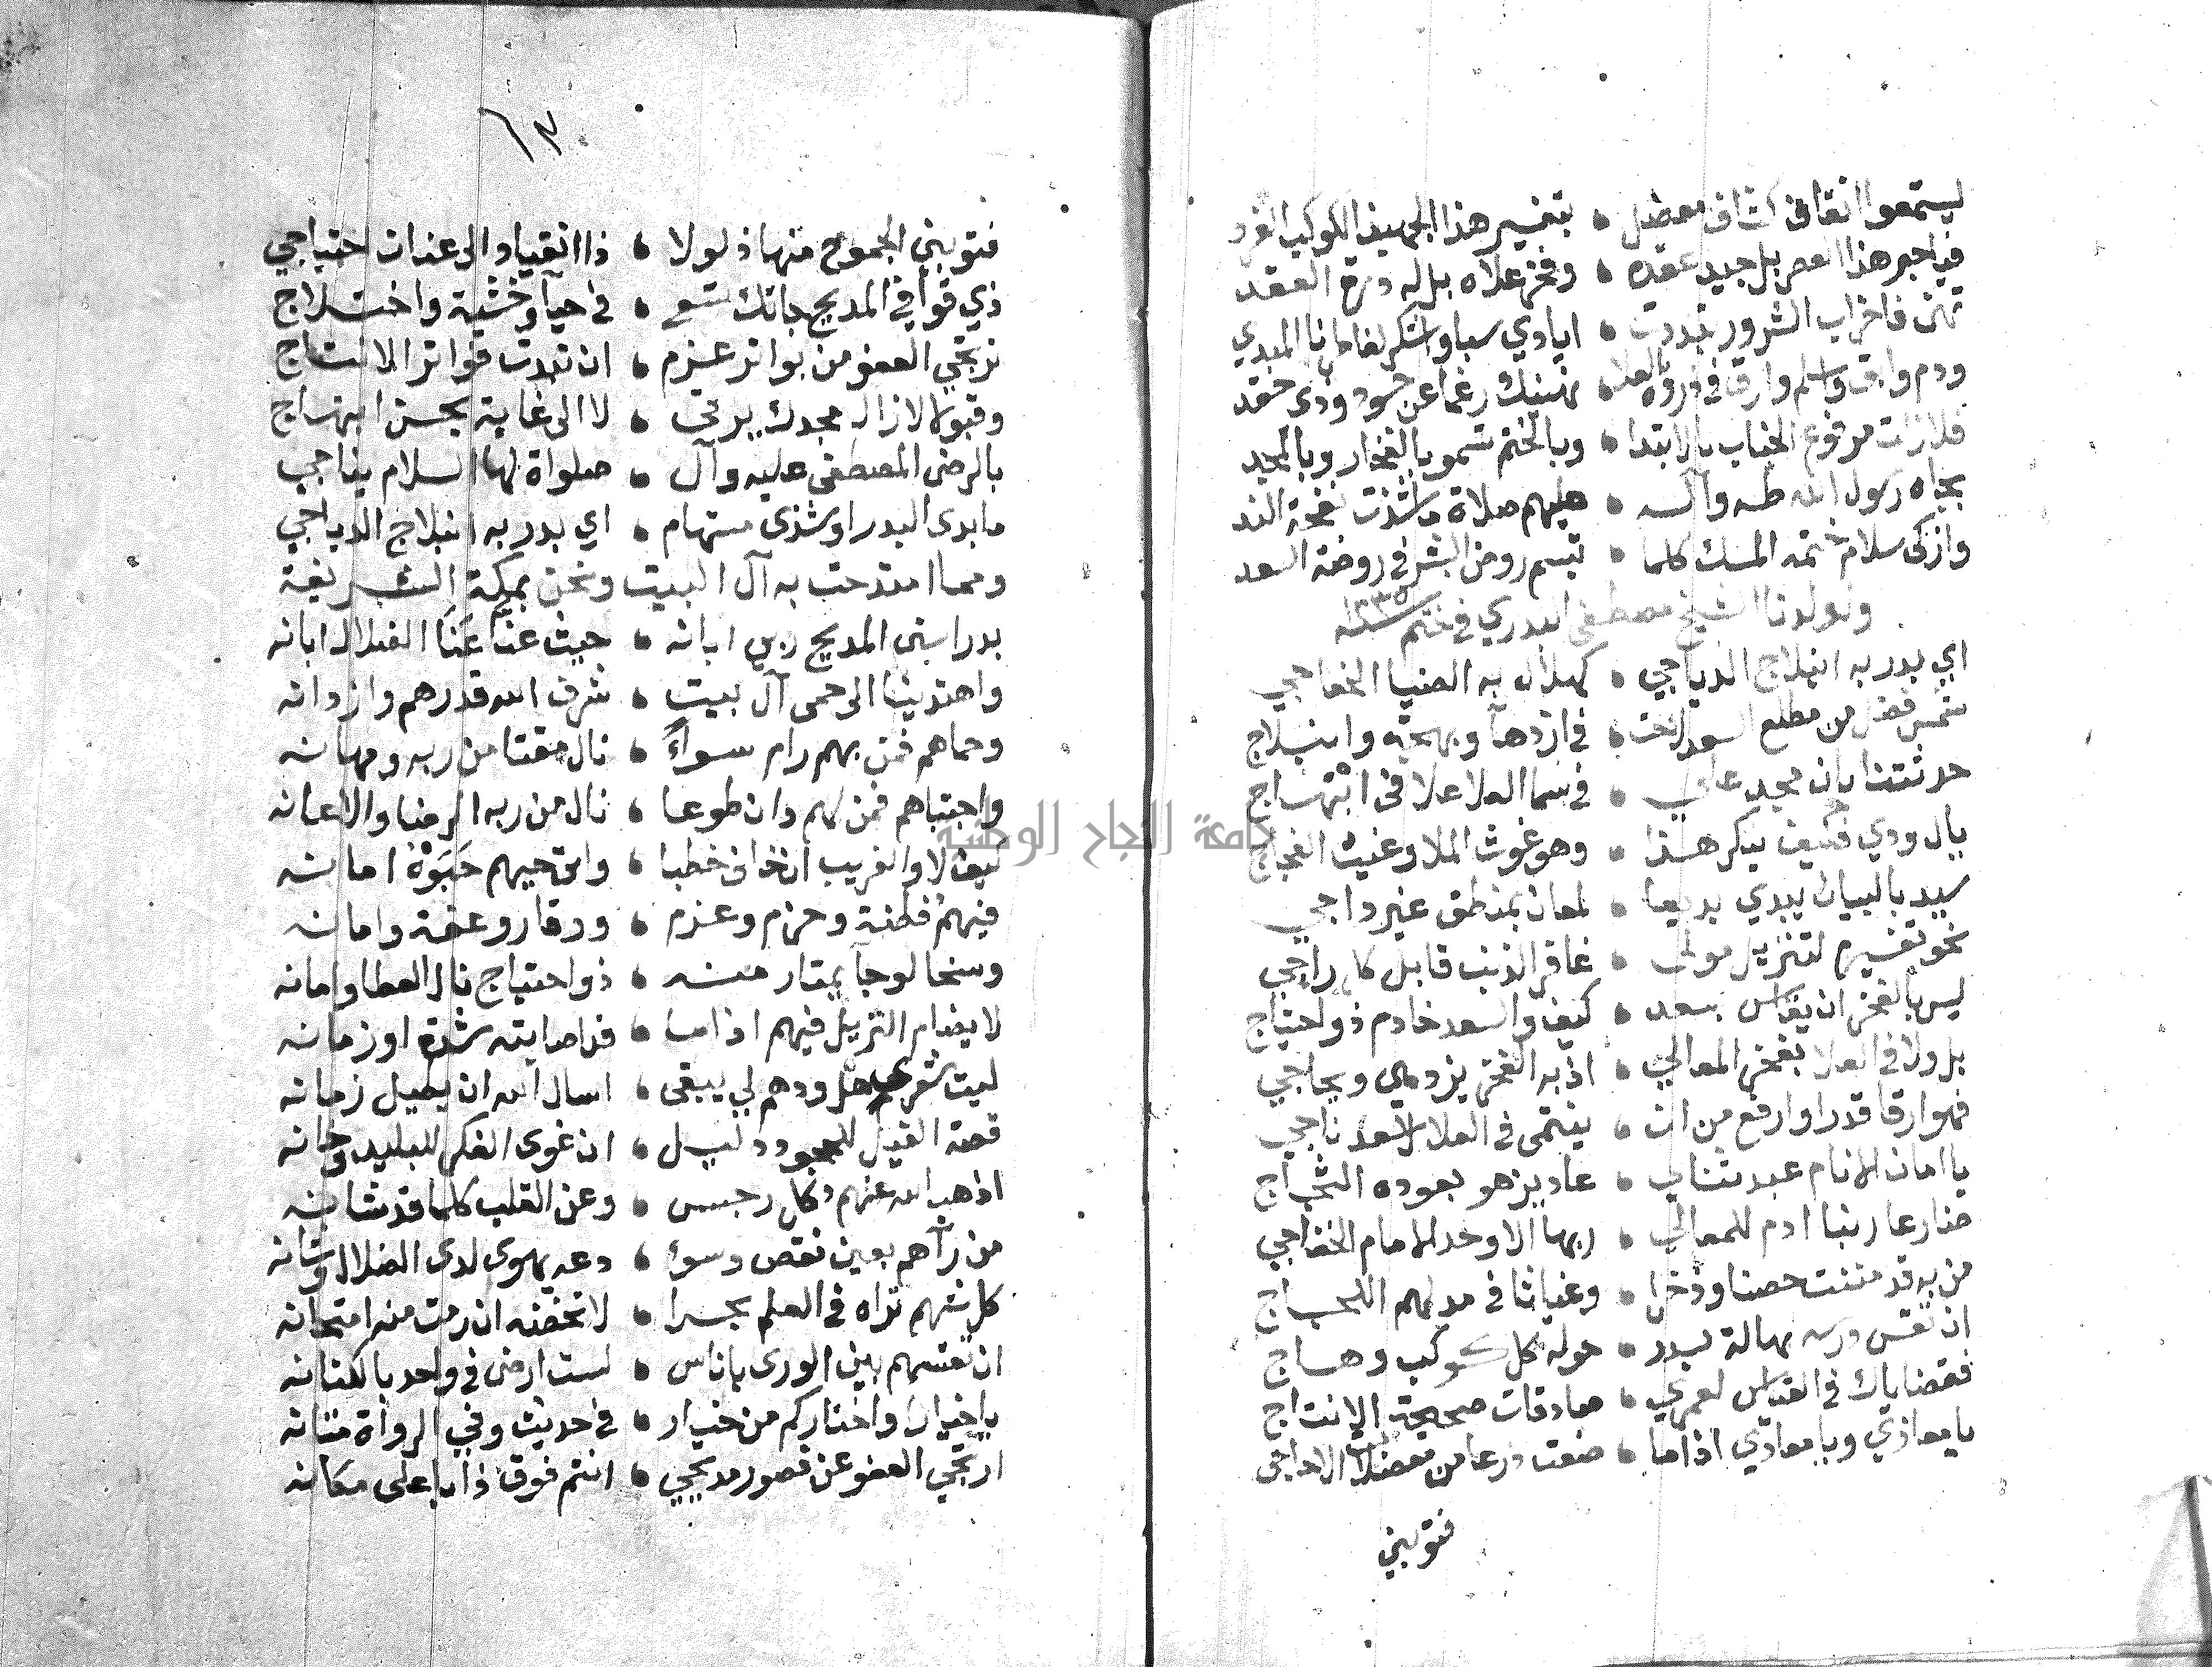 ليستمعوا اتقان كشاف معضل • بتفسير هذا الجهبذ الكوكب الفرد
فيا حبر هذا العصر بل جيد عقده • وفخر علاه بل له درة العقد
تهن فاخراب الشرور تبددت • ايادي سبا واشكر لفا المبدي
ودم وابق واسلم وارق في ذروة العلا • نهنيك رغما عن حسود وذى حقد
فلازلت مرفوع الجناب بالابتدا • وبالختم تسمو بالفخار وبالمجد
بجاه رسول الله طه وآله • عليهم صلاة ما شذت نفحة الند
وازكى سلام ختمه المسك كلما • تبسم روض البشر في روضة السعد
ولولدنا الشيخ مصطفى البدري في ختم سنة
اي بدر به انبلاج الدياجي • كهلال به الضيا الخفاجي
شمس فضل من مطلع السعد لاحت • في ازدهآ وبهجة وانبلاج
حدثتنا بان مجد علي • في سما العلا علا في ابتهاج
يال ودي فكيف ينكر هذا • وهو غوث الملا وغيث الفجاج
سيد بالبيان يبدي بديعا • لمعان بمنطق غير داجي
نحو تفسيره لتنزيل مولى • غافر الذنب قابل كل راجي
ليس بالفخر ان يقاس بسعد • كيف والسعد خادم ذو احتياج
بل ولا في العلا بفخر المعالي • اذ به الفخر يزدهي ويحاجي
فهو ارقا قدرا وارفع من ان • ينتمى في العلا لاسعد ناجي
يا امان الانام عبد ثناي • عاد يزهو بعوده الثجاج
ضارعا ربنا ادم للمعالي • ربها الاوحد الامام الخفاجي
من به قد منت حصنا وذخرا • وغياثا في مدلهم اللجاج
ان تقس درسه بهالة بدر • حوله كل كوكب وهاج
فقضاياك في القياس لعمري • صادقات صحيحة الانتاج
يا معاذي ويا معاذي اذا ما • ضقت ذرعا من معضلات الاداجي
فتوبني
٦٣
فتوبني الجموح منها ذلولا • ذا انقياد والى عنات احتياجي
ذي قوافي المديح جاتك تسعى • في حيآ وخشية واختلاج
نرتجي العفو من بواتر عزم • ان تبدت فواتر الانتاج
وقبولا لازال مجدك يرقى • لا الى غاية بحسن ابتهاج
بالرضى المصطفى عليه وآل • صلواة لها السلام يناجي
ما بدى البدر او شذى مستهام • اي بدر به انبلاج الدياجي
ومما امتدحت به آل البيت ونحن بمكة الشريفة
بدر اسنى المديح ربي ابانه • حيث عنا عَنَا الضلال ابانه
واهتدينا الى حمى آل بيت • شرف الله قدرهم وازدانه
وحماهم فمن بهم رام سوءاً • نال مقتا من ربه ومهانه
واجتباهم فمن لهم دان طوعا • نال من ربه الرضا والاعانه
كيف لا والغريب ان خاف خطبا • وانتحيهم حَبَوْهُ امانه
فيهم فطنة وحزم وعزم • ووقار وعفة وامانه
وسخا لو جآ يمتار منه • ذو احتياج نال العطا وامانه
لا يضام النزيل فيهم اذا ما • قد اصابته شدة او زمانه
ليت شعري هل ودهم لي يبقى • اسال الله ان يطيل زمانه
قصة الفيل للجحود دليل • ان غوى الفكر للبليد وخانه
اذهب الله عنهم كل رجس • وعن القلب كلما قد شانه
من رآهم بعين نقص وسوء • دعه يهوى لدى الضلال وشانه
كل شهم تراه في العلم بحرا • لا تخفنه ان رمت منه امتحانه
ان تقسهم بين الورى باناس • لست ارضى في واحد بالكنانه
يا خيارا واختاركم من خيار • في حديث وفي الرواة متانه
ارتجي العفو عن قصور مديحي • انتم فوق ذا باعلى مكانه
جامعة النجاح الوطنية